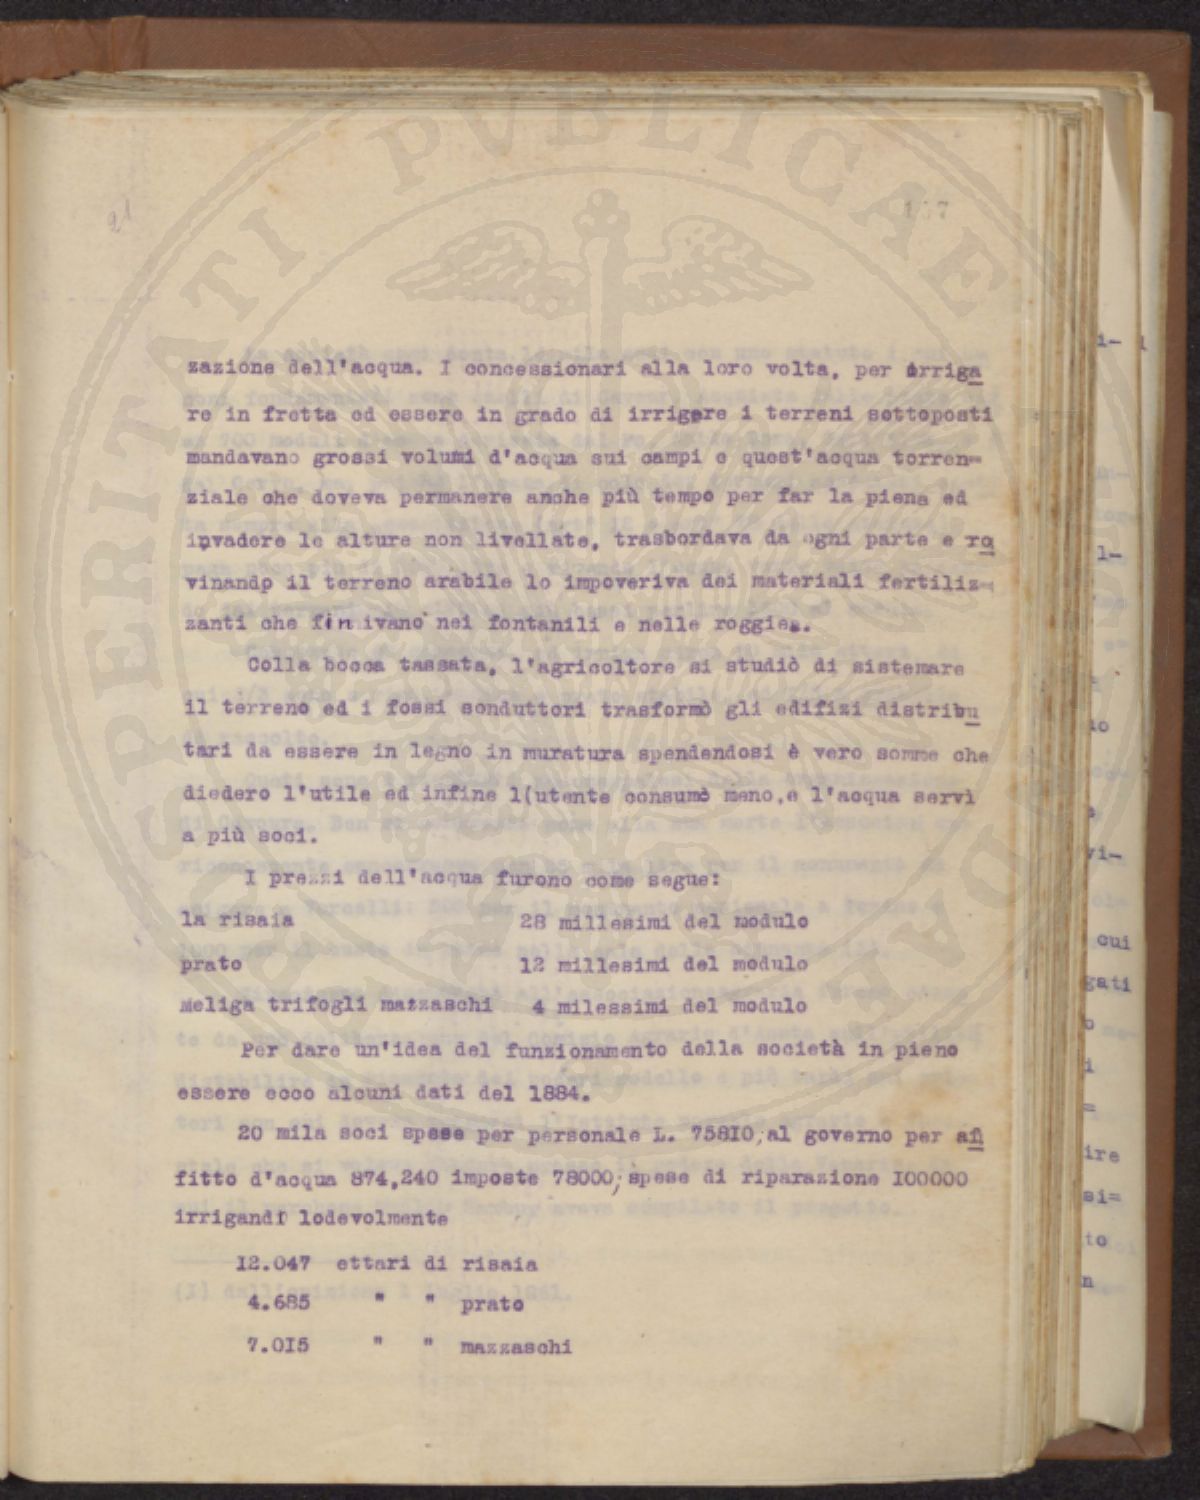 21
157
zazione dell'acqua. I concessionari alla loro volta, per irriga
re in fretta ed essere in grado di irrigare i terreni sottoposti
mandavano grossi volumi d'acqua sui campi e quest'acqua torren=
ziale che doveva permanere anche più tempo per far la piena ed
invadere le alture non livellate, trasbordava da ogni parte e ro
vinando il terreno arabile lo impoveriva dei materiali fertiliz=
zanti che finivano nei fontanili e nelle roggie.
Colla bocca tassata, l'agricoltore si studiò di sistemare
il terreno ed i fossi sonduttori trasformò gli edifizi distribu
tari da essere in legno in muratura spendendosi è vero somme che
diedero l'utile ed infine l(utente consumò meno,e l'acqua servì
a più soci.
I prezzi dell'acqua furono come segue:
la risaia 28 millesimi del modulo
prato 12 millesimi del modulo
Meliga trifogli mazzaschi 4 milessimi del modulo
Per dare un'idea del funzionamento della società in pieno
essere ecco alcuni dati del 1884.
20 mila soci spese per personale L. 758I0;al governo per af
fitto d'acqua 874,240 imposte 78000; spese di riparazione I00000
irrigandi lodevolmente
I2.047 ettari di risaia
4.685 " " prato
7.0I5 " " mazzaschi
ASPERITATI PVBLICAE